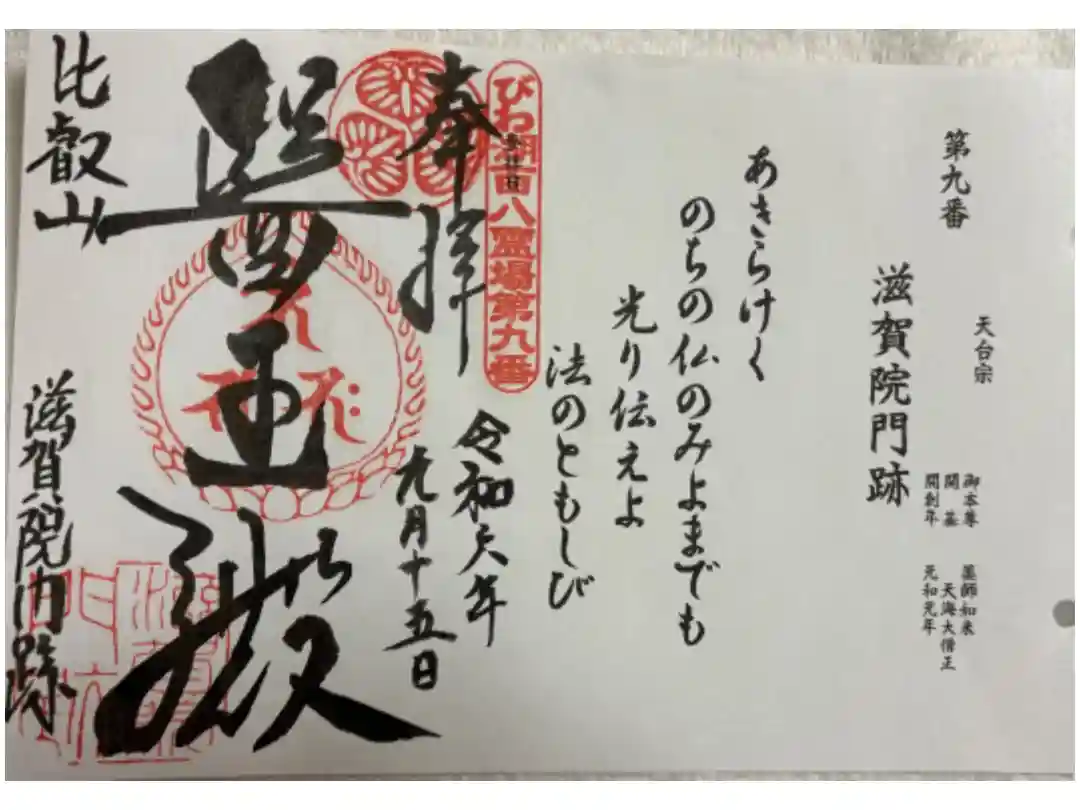 第九番
天台宗
滋賀院門跡
御本尊　薬師如来
開基　天海大僧正
開創年　元和元年
あきらけく
のちの仏のみよまでも
光り伝えよ
法のともしび
びわ湖百八霊場第九番
奉拝
令和六年
九月十五日
醫王殿
比叡山
滋賀院門跡